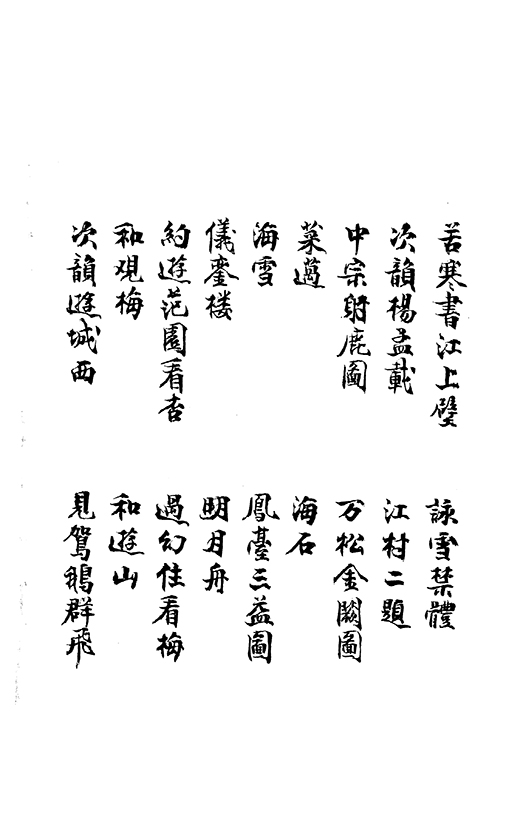 苦寒書江上壁
詠雪禁體
次韻楊孟載
江村二題
中宗射鹿圖
万松金闕圖
菜薖
海石
海雪
鳳臺三益圖
儀鸞楼
明月舟
約遊范園看杏
過幻住看梅
和观梅
和遊山
次韻遊城西
見駕鵝群飛